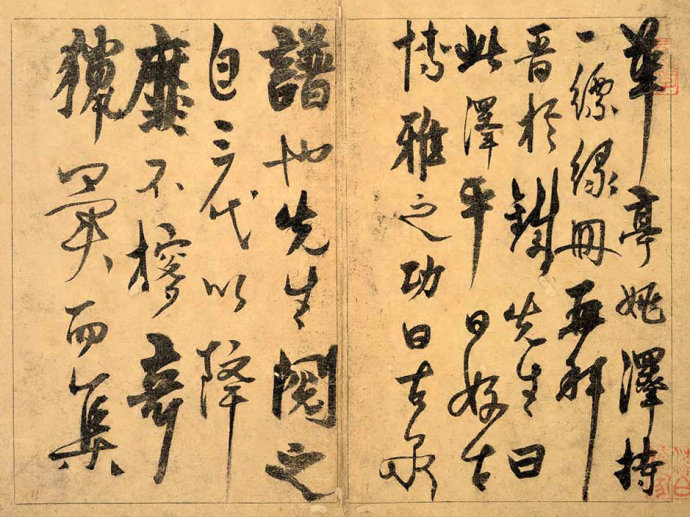 華亭姚澤持
一縹緑冊再拜
晋於鐵先生曰
此澤平日好古
博雅之功曰古泉
譜也先生閱之
自三代以降
靡不搜奇
獵異而集